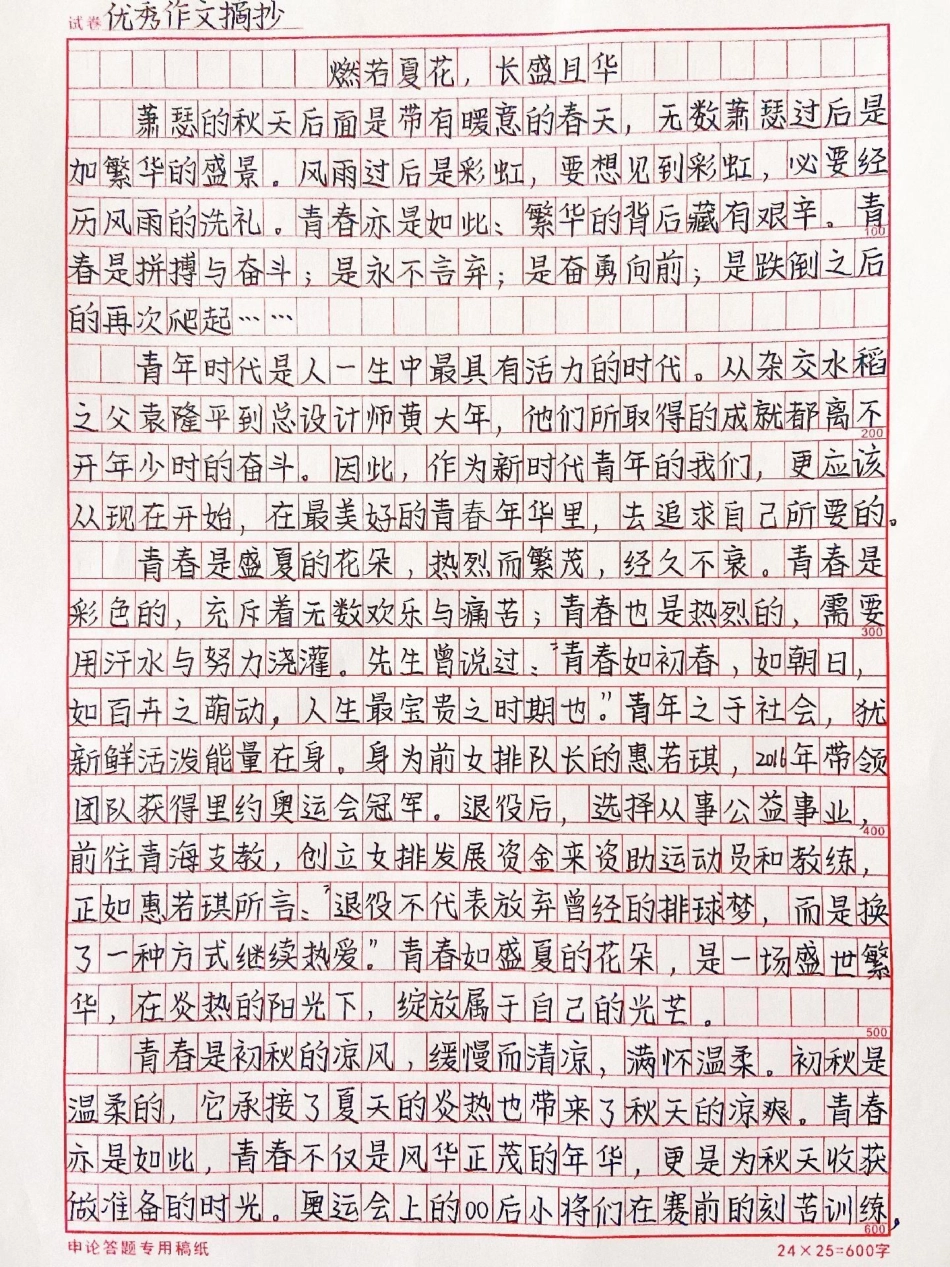 试卷 优秀作文摘抄
燃若夏花，长盛且华
萧瑟的秋天后面是带有暖意的春天，无数萧瑟过后是
加繁华的盛景。风雨过后是彩虹，要想见到彩虹，必要经
历风雨的洗礼。青春亦是如此：繁华的背后藏有艰辛。青
100
春是拼搏与奋斗；是永不言弃；是奋勇向前；是跌倒之后
的再次爬起……
青年时代是人一生中最具有活力的时代。从杂交水稻
之父袁隆平到总设计师黄大年，他们所取得的成就都离不
200
开年少时的奋斗。因此，作为新时代青年的我们，更应该
从现在开始，在最美好的青春年华里，去追求自己所要的。
青春是盛夏的花朵，热烈而繁茂，经久不衰。青春是
彩色的，充斥着无数欢乐与痛苦；青春也是热烈的，需要
300
用汗水与努力浇灌。先生曾说过：“青春如初春，如朝日，
如百卉之萌动，人生最宝贵之时期也”。青年之于社会，犹
新鲜活泼能量在身。身为前女排队长的惠若琪，2016年带领
团队获得里约奥运会冠军。退役后，选择从事公益事业，
400
前往青海支教，创立女排发展资金来资助运动员和教练，
正如惠若琪所言：“退役不代表放弃曾经的排球梦，而是换
了一种方式继续热爱”。青春如盛夏的花朵，是一场盛世繁
华，在炎热的阳光下，绽放属于自己的光芒。
500
青春是初秋的凉风，缓慢而清凉，满怀温柔。初秋是
温柔的，它承接了夏天的炎热也带来了秋天的凉爽。青春
亦是如此，青春不仅是风华正茂的年华，更是为秋天收获
做准备的时光。奥运会上的00后小将们在赛前的刻苦训练，
600
申论答题专用稿纸 24×25=600字